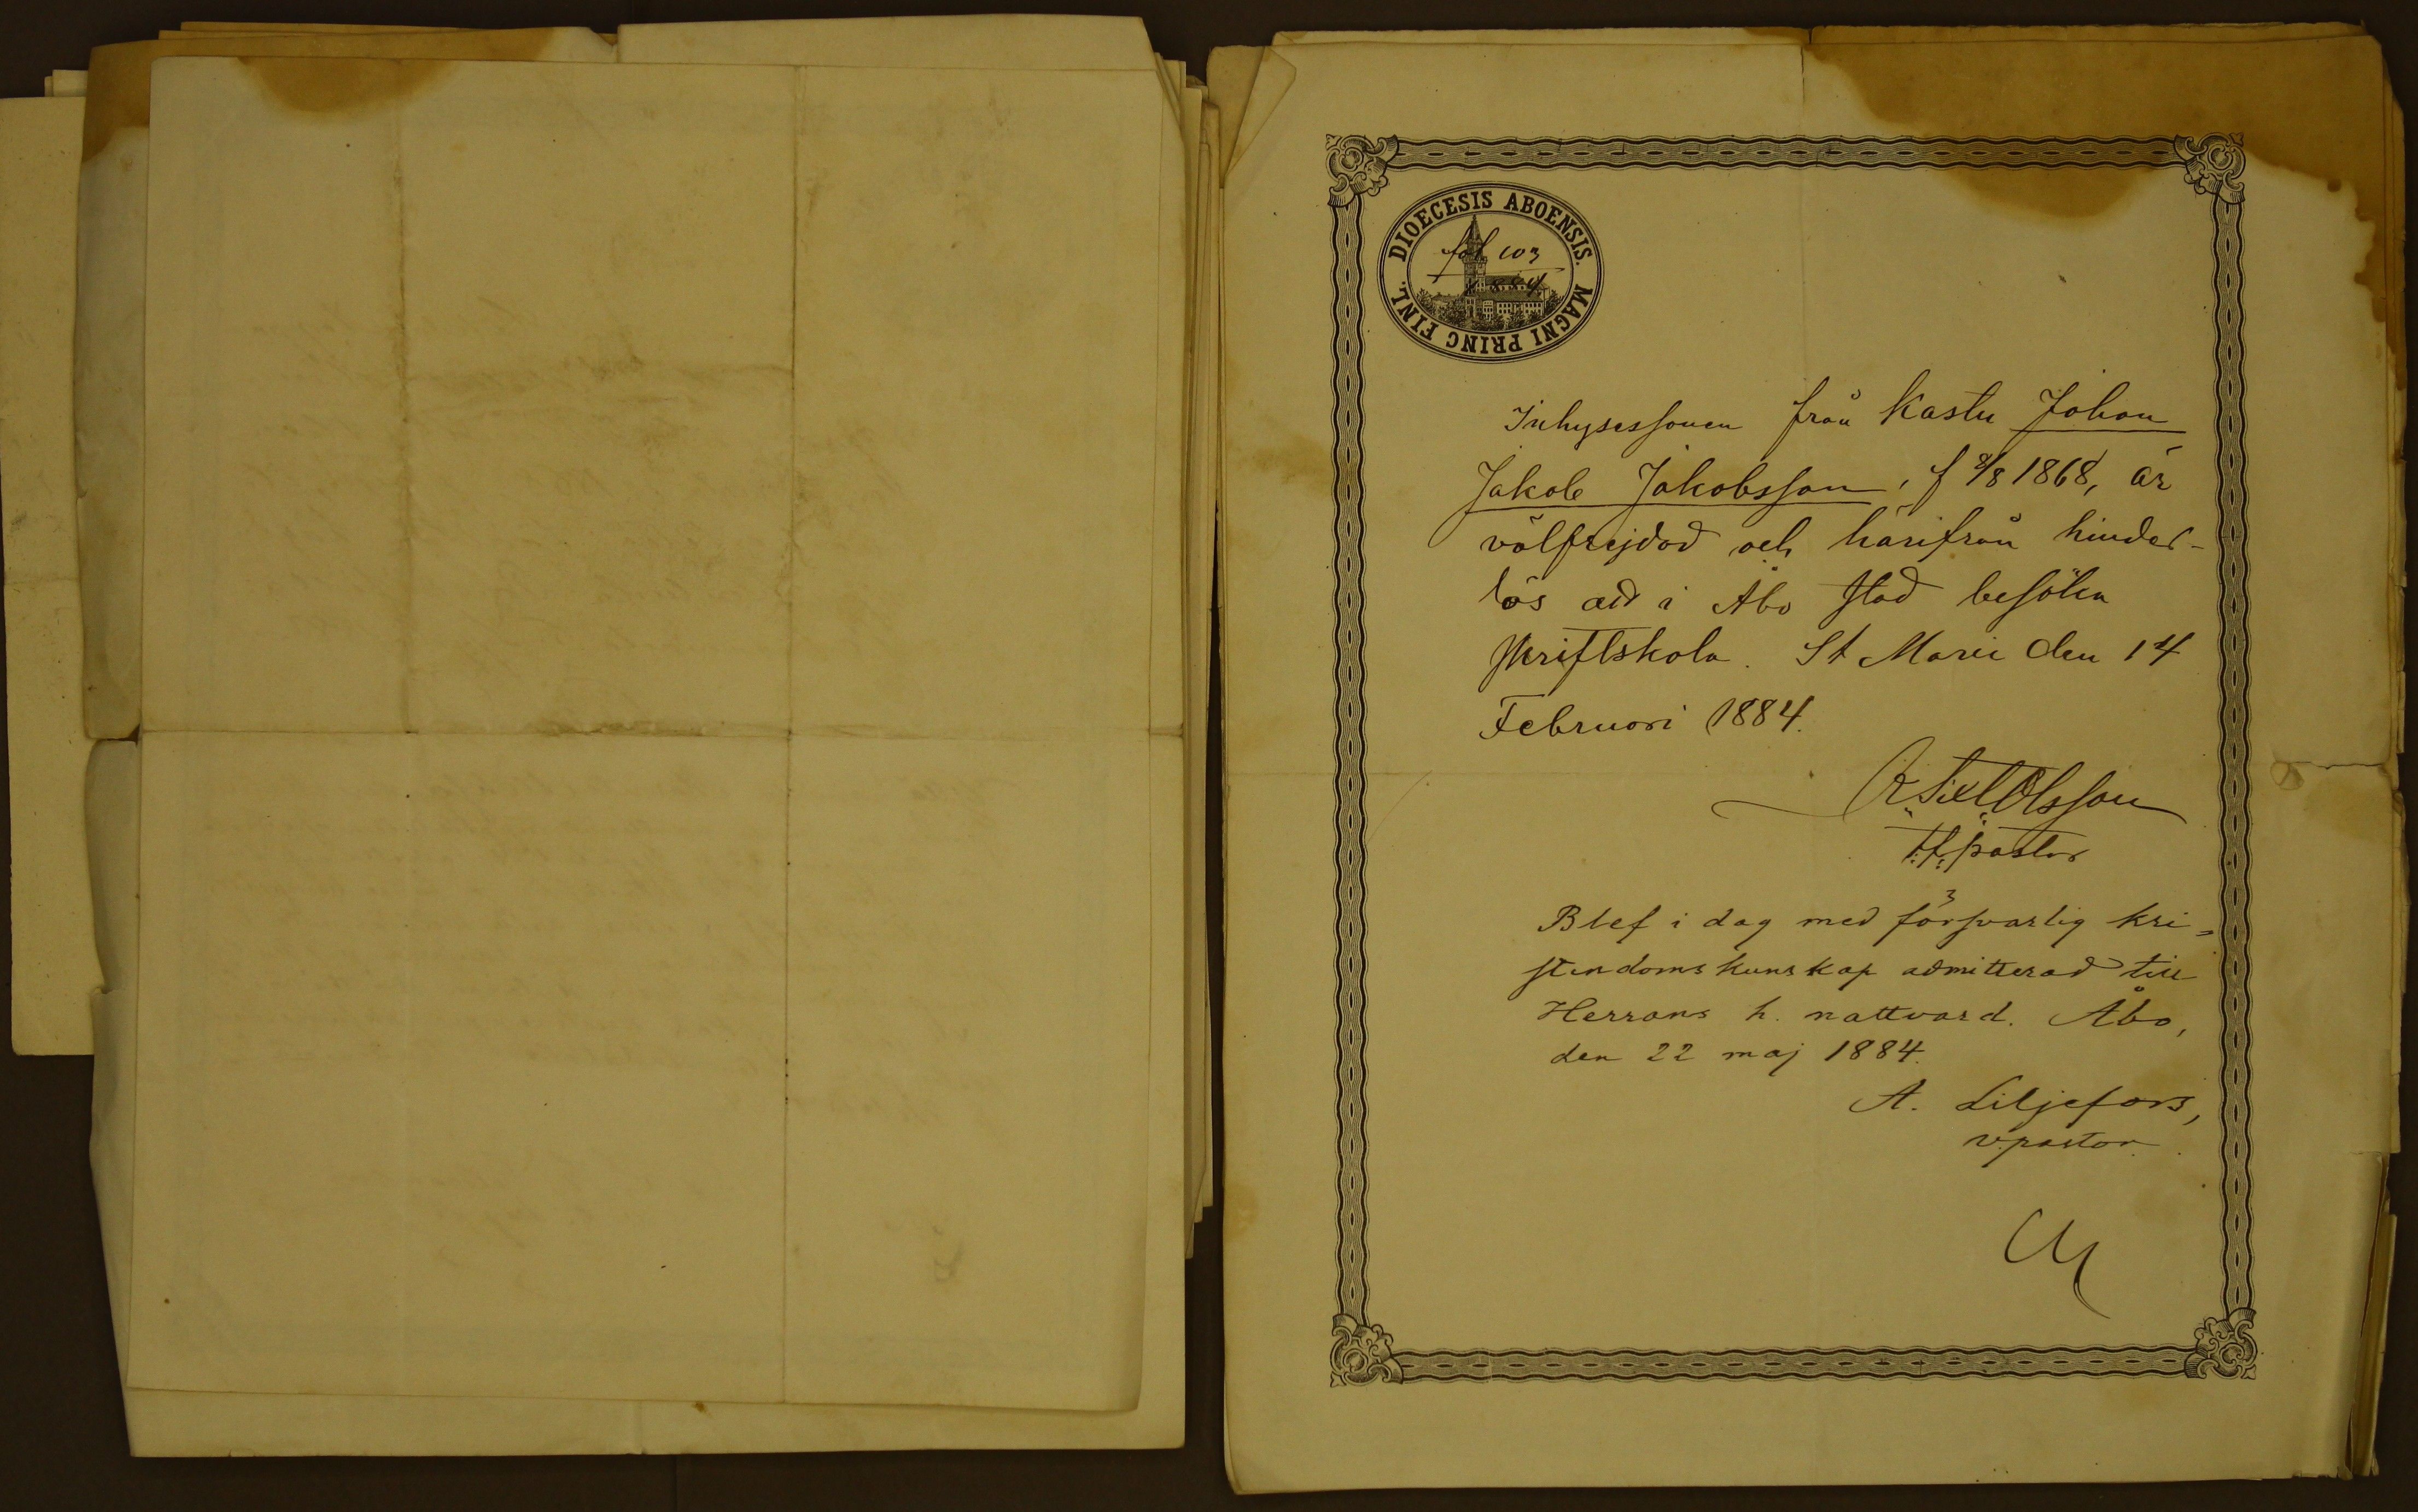 DIOECESIS ABOENSIS. MAGNI PRINC FINL.
fol 103
Inhysessonen från Kastu Johan
Jakob Jakobsson, f 9/8 1868, är
välfrejdad och härifrån hinder-
lös att i Åbo stad besöka
skriftskola. St Marie den 14
Februari 1884.
Olsson
t.f. pastor
Blef i dag med försvarlig kri-
stendomskunskap admitterad till
Herrans h. nattvard. Åbo,
den 22 maj 1884.
A. Liljefors,
v.pastor.